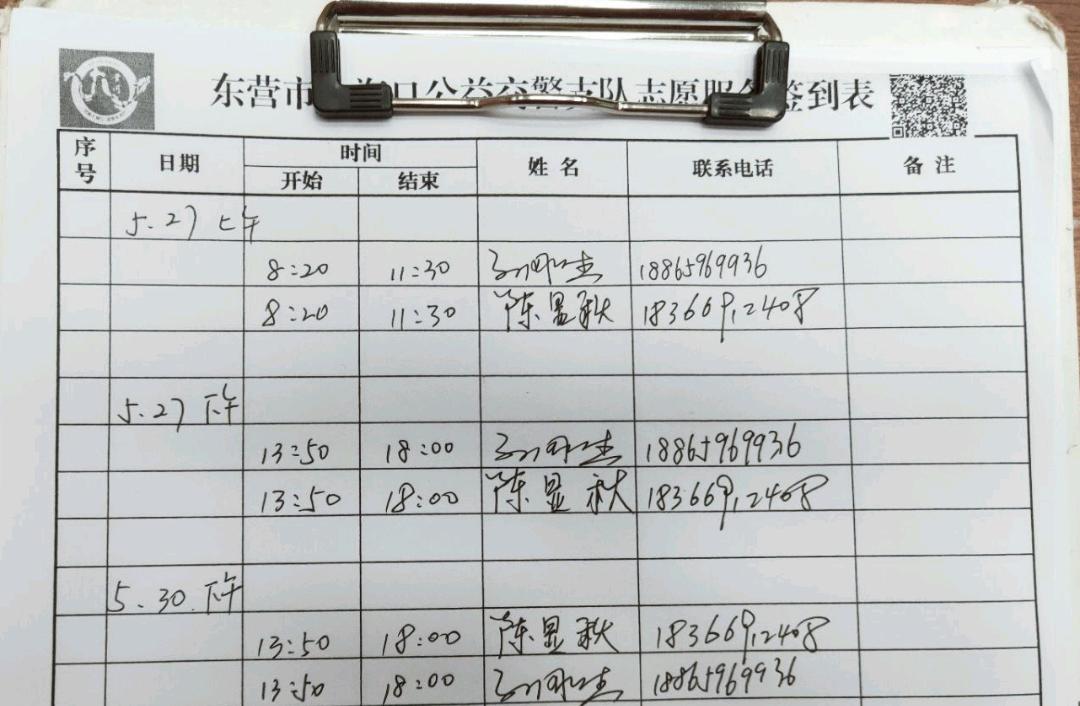 东营市 海口公益交警支队志愿服务签到表
序号 日期 时间 姓名 联系电话 备注
开始 结束
5.27 上午
8:20 11:30 18865969936
8:20 11:30 陈显秋 18366912408
5.27 下午
13:50 18:00 18865969936
13:50 18:00 陈显秋 18366912408
5.30. 下午
13:50 18:00 陈显秋 18366912408
13:50 18:00 18865969936